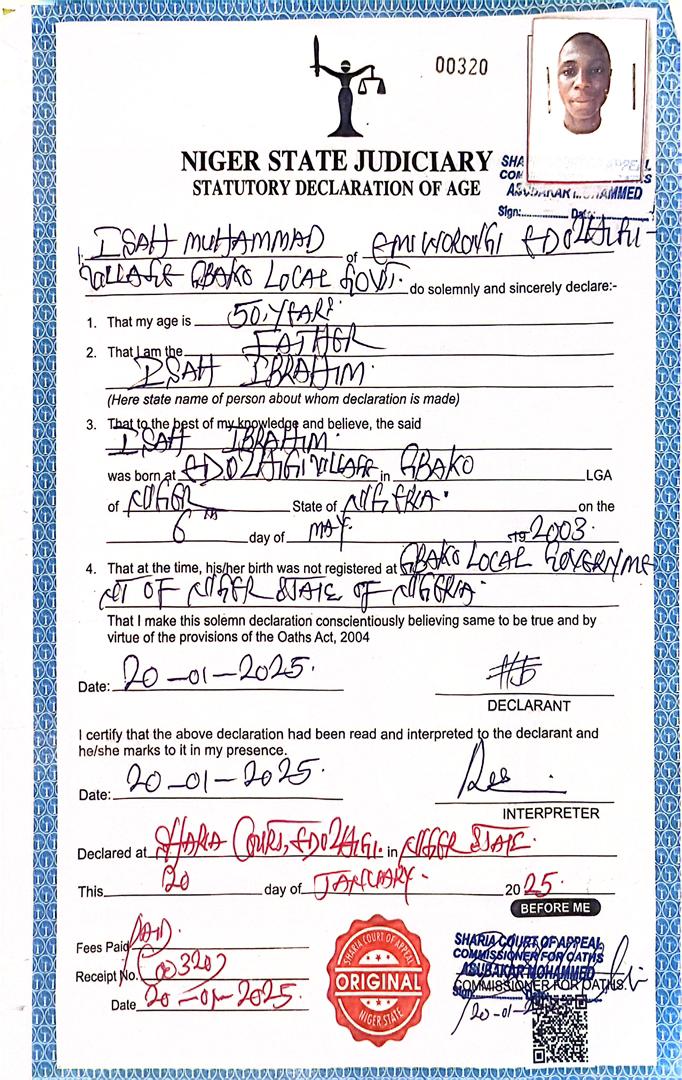 00320
NIGER STATE JUDICIARY
STATUTORY DECLARATION OF AGE
SHA
COM
ABUBAKAR MOHAMMED
Sign: Date:
I, ISAH MUHAMMAD of EMIWORONGI EDOZHIGI
VILLAGE GBAKO LOCAL GOVT. do solemnly and sincerely declare:-
1. That my age is 50 YEARS
2. That I am the FATHER
ISAH IBRAHIM
(Here state name of person about whom declaration is made)
3. That to the best of my knowledge and believe, the said
ISAH IBRAHIM.
was born at EDOZHIGI VILLAGE in GBAKO LGA
of NIGER State of NIGERIA. on the
6th day of MAY 19 2003.
4. That at the time, his/her birth was not registered at GBAKO LOCAL GOVERNME
NT OF NIGER STATE OF NIGERIA
That I make this solemn declaration conscientiously believing same to be true and by
virtue of the provisions of the Oaths Act, 2004
Date: 20-01-2025.
DECLARANT
I certify that the above declaration had been read and interpreted to the declarant and
he/she marks to it in my presence.
Date: 20-01-2025.
INTERPRETER
Declared at SHARIA COURT, EDOZHIGI. in NIGER STATE.
This 20 day of JANUARY. 2025.
BEFORE ME
Fees Paid PAID.
Receipt No. 00320
Date 20-01-2025.
SHARIA COURT OF APPEAL
ORIGINAL
NIGER STATE
SHARIA COURT OF APPEAL
COMMISSIONER FOR OATHS
ABUBAKAR MOHAMMED
COMMISSIONER FOR OATHS.
Sign Date
20-01-2